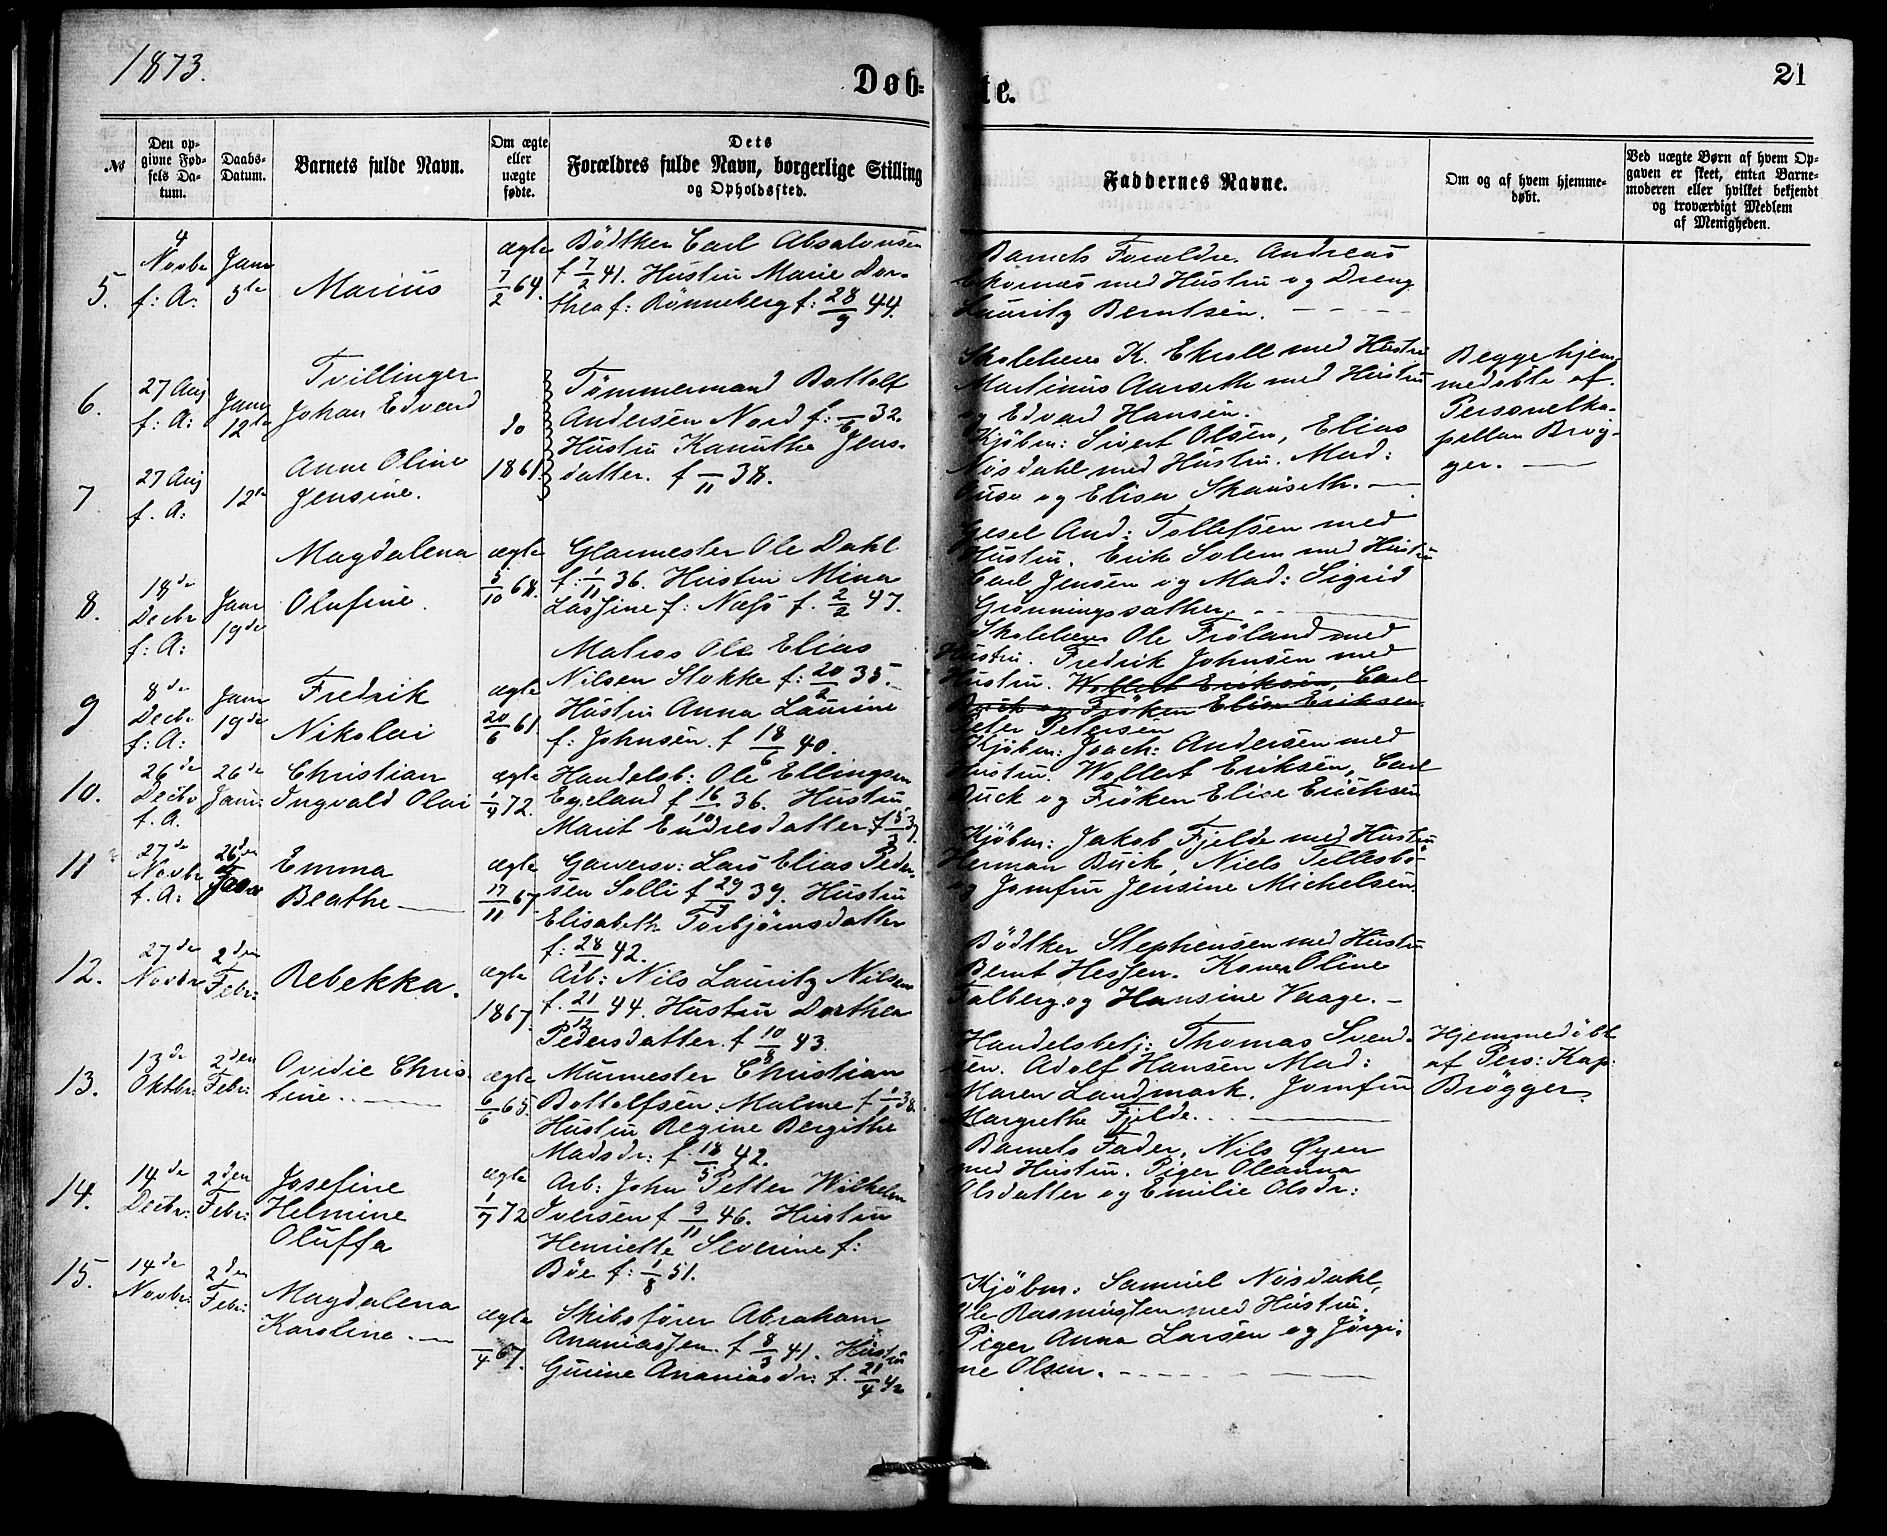 1873.
Døb-
te.
21
No
Den op-
givne Fød-
sels Da-
tum.
Daabs-
Datum.
Barnets fulde Navn.
Om ægte
eller
uægte
fødte.
Dets
Forældres fulde Navn, borgerlige Stilling
og Opholdssted.
Faddernes Navne.
Om og af hvem hjemme-
døbt.
Ved uægte Børn af hvem Op-
gaven er skeet, enten Barne-
moderen eller hvilket bekjendt
og troværdigt Medlem
af Menigheden.
5.
4
Novbr
f: A:
Janr
5te
Marius
ægte
7/2 64.
Bödtker Carl Absalonsen
f 7/2 41. Hustru Marie Dor-
thea f: Rönneberg f: 28/9 44.
Barnets Forældre. Andreas
med Hustru og Dreng
Lauritz Berntsen.
6.
27 Aug
f: A:
Janr
12te
Tvillinger
Johan Edvard
do
1861.
Tömmermand Bottolf
Andersen Nord f: /6 32.
Hustru Kanutha Jens-
datter. f /11 38.
Skolelærer K. Ekroll med Hustru
Martinus Aarseth med Hustru
og Edvard Hansen.
Begge hjem-
medöbte af
Personelka-
pellan Brög-
ger.
7
27 Aug
f. A:
12te
Anne Oline
Jensine.
Kjöbm: Sivert Olsen, Elias
Nösdahl med Hustru. Mad:
og Elisa Skanseth.
8.
18de
Decbr
f: A:
Janr
19de
Magdalena
Olufine.
ægte
5/10 68.
Glarmester Ole Dahl
f: 1/11 36. Hustru Mina
Lassine f: Næss f. 2/2 47.
And: Tollefsen med
Hustru. Erik Solem med Hustru
Carl Jensen og Mad: Sigrid
Grönningssæther.
9
8de
Decbr
f: A:
Janr
19de
Fredrik
Nikolai
ægte
20/6 61.
Matros Ole Elias
Nilsen Slokke f: 20/2 35.
Hustru Anna Laurine
f: Johnsen. f 18/6 40.
Skolelærer Ole Fröland med
Hustru. Fredrik Johnsen med
Hustru. Wollert Eriksen, Carl
Buck og Fröken Elise Eriksen
Peter Petersen
10.
26de
Decbr
f. A.
26de
Janr.
Christian
Ingvald Olai
ægte
1/4 72.
Handelsb: Ole Ellingsen
Egeland f 16/10 36. Hustru
Marit Endresdatter f 5/3 37.
Kjöbm: Joach: Andersen med
Hustru. Wollert Eriksen, Carl
Buck og Fröken Elise Erichsen
11
27de
Novbr
f. A:
26den
Janr
Emma
Beathe
ægte
17/11 67.
Garversv: Lars Elias Peder-
sen Solli f 29/7 39. Hustru
Elisabeth Torbjörnsdatter
f: 28/11 42.
Kjöbm: Jakob Fjelde med Hustru
Herman Buck, Niels Tellesbö
og Jomfru Jensine Michelsen.
12.
27de
Novbr
2den
Febr:
Rebekka.
ægte
1867.
Arb: Nils Lauritz Nilsen
f. 21/12 44. Hustru Dorthea
Pedersdatter. f 10/8 43.
Bödtker Stephensen med Hustru
Bernt Hessen. Koner Oline
Talberg og Hansine Vaage.
13.
13de
Oktbr:
2den
Febr:
Ovidie Chris-
tine.
ægte
6/6 65.
Murmester Christian
Bottolfsen Malme f 1/1 38.
Hustru Regine Bergithe
Madsdr: f. 18/5 42.
Handelsbetj: Thomas Svend-
sen. Adolf Hansen Mad:
Maren Landmark. Jomfru
Margrethe Fjelde.
Hjemmedöbt
af Pers: Kap:
Brögger.
14.
14de
Decbr:
2den
Febr:
Josefine
Helmine
Oluffa
ægte
1/7 72
Arb: John Petter Wilhelm
Iversen f 9/11 46. Hustru
Henriette Severine f:
Böe f: 1/8 51.
Barnets Fader, Nils Øyen
med Hustru. Piger Oleanna
Olsdatter og Emilie Olsdr:
15.
14de
Novbr:
2den
Febr:
Magdalena
Karoline.
ægte
/4 67.
Skibsförer Abraham
Ananiassen. f 8/3 41. Hustru
Gurine Ananiasdr: f. 21/4 42
Kjöbm: Samuel Nösdahl,
Ole Rasmussen med Hustru.
Piger Anna Larsen og Jörgi-
ne Olsen.